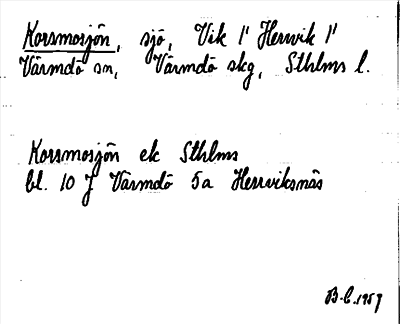 Korsmosjön, sjö, Vik 1' Herrvik 1'
Värmdö sn, Värmdö skg, Sthlms l.
Korsmosjön ek Sthlms
bl. 10 J Värmdö 5a Herrviksnäs
B.C. 1957